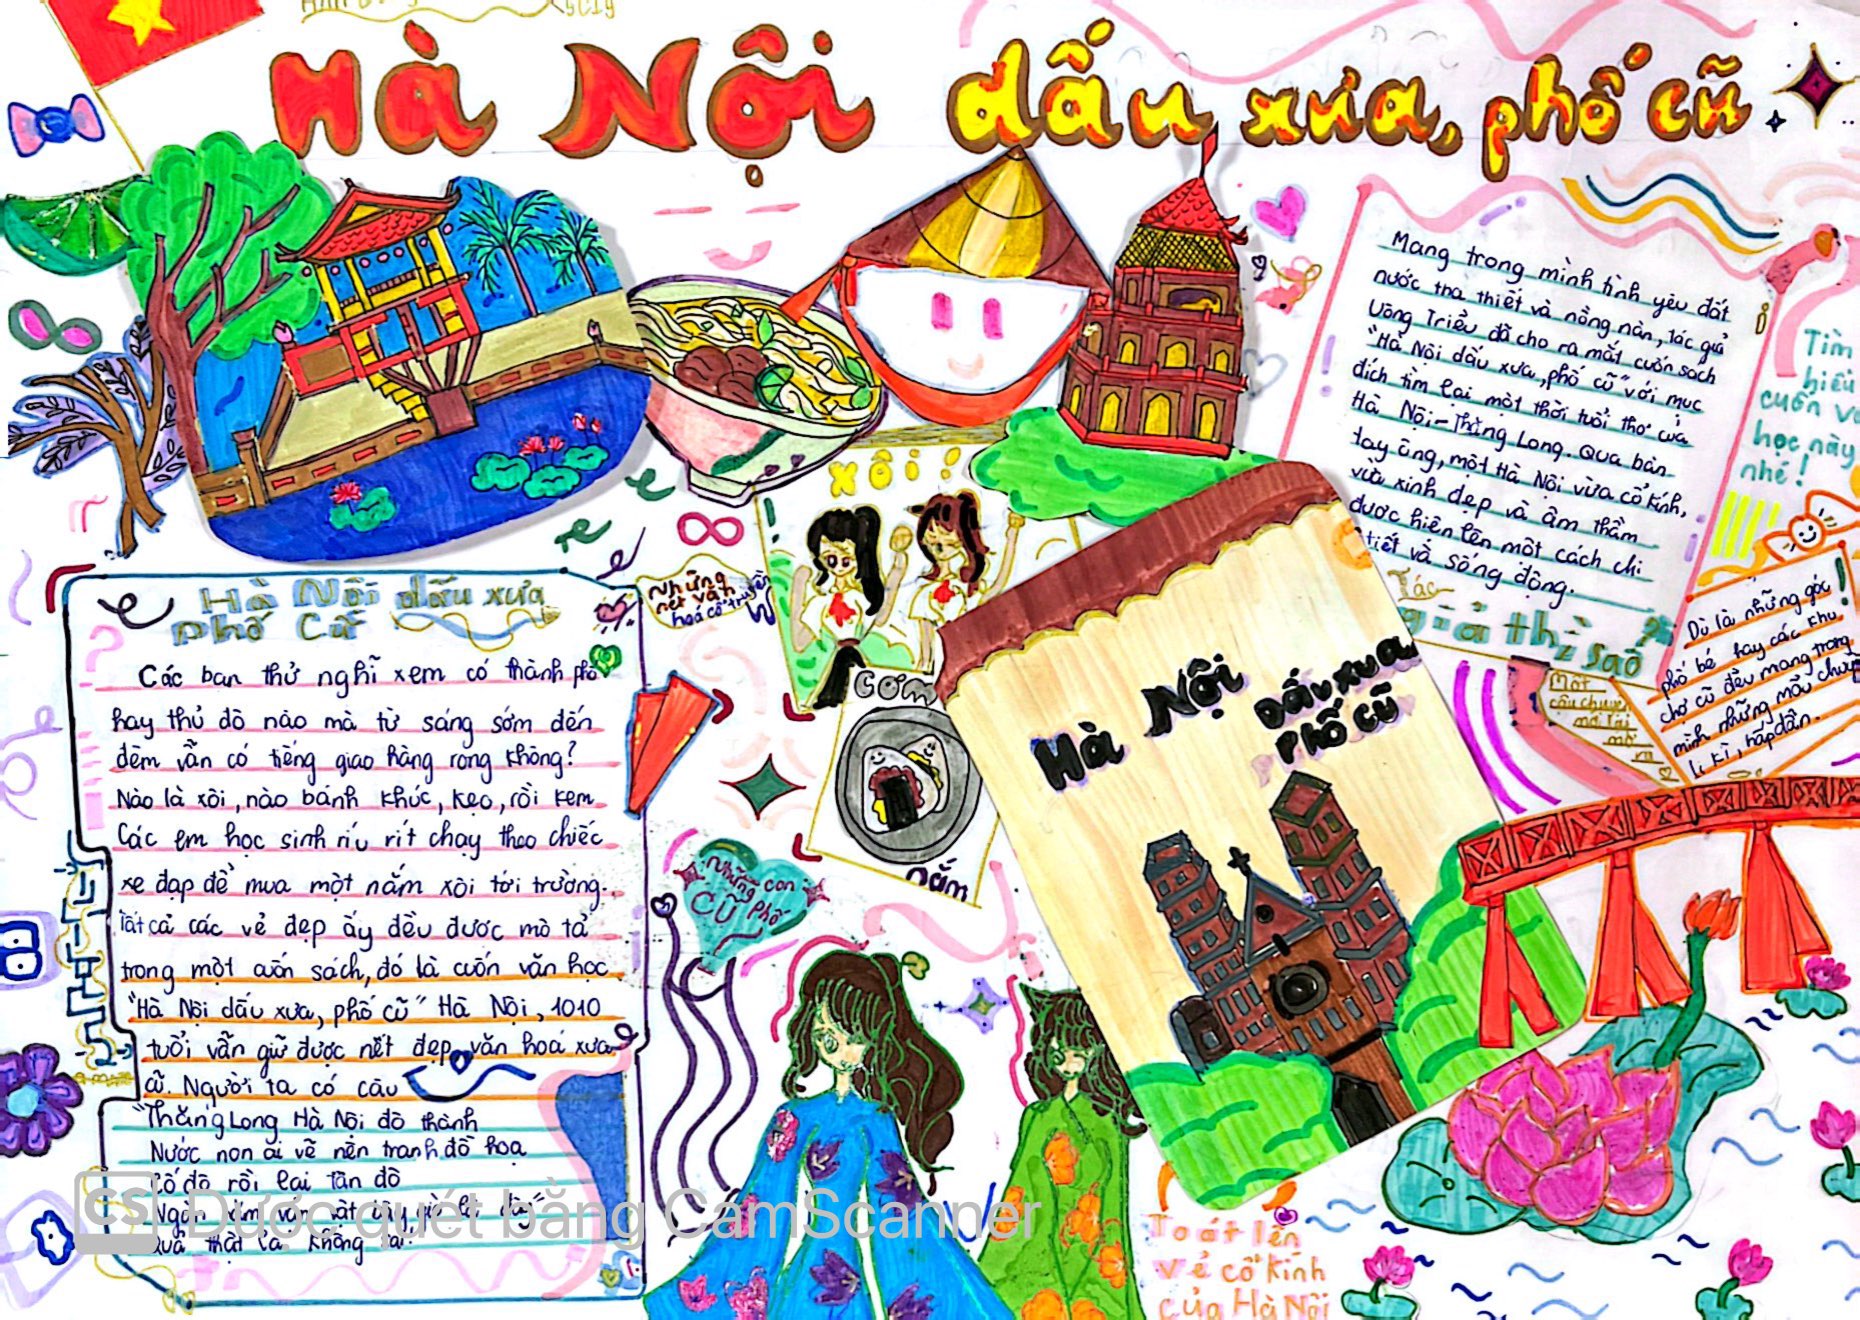 Hà Nội dấu xưa, phố cũ
Mang trong mình tình yêu đất
nước tha thiết và nồng nàn, tác giả
Uông Triều đã cho ra mắt cuốn sách
"Hà Nội dấu xưa, phố cũ" với mục
đích tìm lại một thời tuổi thơ của
Hà Nội - Thăng Long. Qua bàn
tay ông, một Hà Nội vừa cổ kính,
vừa xinh đẹp và âm thầm
được hiện lên một cách chi
tiết và sống động.
Tìm
hiểu
cuốn
học này
nhé!
Tác
giả thì sao?
XÔI!
Những
nét văn
hoá cổ truyền
Hà Nội dấu xưa
Phố Cũ
Các bạn thử nghĩ xem có thành phố
hay thủ đô nào mà từ sáng sớm đến
đêm vẫn có tiếng giao hàng rong không?
Nào là xôi, nào bánh khúc, kẹo, rồi kem
Các em học sinh ríu rít chạy theo chiếc
xe đạp để mua một nắm xôi tới trường.
Tất cả các vẻ đẹp ấy đều được mô tả
trong một cuốn sách, đó là cuốn văn học
"Hà Nội dấu xưa, phố cũ" Hà Nội, 1010
tuổi vẫn giữ được nét đẹp văn hoá xưa
cũ. Người ta có câu
"Thăng Long Hà Nội đô thành
Nước non ai vẽ nên tranh đồ hoạ
Cố đô rồi lại tân đô
Ngàn năm văn vật
quả thật là không sai!
Cơm
nắm
Những con
phố
CŨ
Hà Nội
Dấu xưa
Phố cũ
Một
câu chuyện
mở ra
Dù là những góc
phố bé hay các khu
chợ cũ đều mang trong
mình những mẩu chuyện
li kì, hấp dẫn.
Toát lên
vẻ cổ kính
của Hà Nội
CS Được quét bằng CamScanner